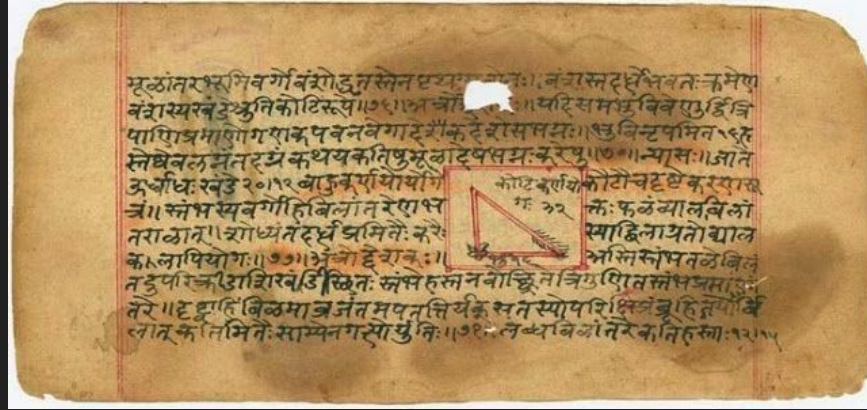 मूळांतरभूमिवर्गो वंशोद्धृतस्तेन पृथग्यु तोनः॥ वंशस्तदर्द्धे भवतः क्रमेण
वंशस्य खंडे श्रुतिकोटिरूपे॥७६॥ यदि समभुवि वेणुर्द्वित्रि
पाणिप्रमाणो गणक पवनवेगादेकदेशे स भग्नः॥ भुवि नृपमित १६ ह
स्तेष्वेव लग्नं तदग्रं कथय कतिषु मूळादेष भग्नः करेषु॥७७॥ न्यासः॥ जाते
ऊर्ध्वाधः खंडे २०।१२ बाहुकर्णयोर्योगे कोटिकर्णयो कोटौ च दृष्टे करणसू
त्रं॥ स्तंभस्य वर्गोहिबिलांतरेण भ गः ३२ क्तः फळं व्याळबिलां
तराळात्॥ शोध्यं तदर्द्धप्रमितैः करैः स्याद्बिलाग्रतो व्याळ
कलापियोगः॥७७॥ अत्रोद्देशकः॥ अस्ति स्तंभतळे बिलं
तदुपरि क्रीडाशिखंडी स्थितः स्तंभे हस्तनवोच्छ्रिते त्रिगुणितस्तंभप्रमाणां
तरे॥ दृष्ट्वाहिं बिळमाव्रजंतमपतत्तिर्यक् स तस्योपरि क्षिप्रं ब्रूहि तयोर्बि
लात् कतिमितैः साम्येन गत्योर्युतिः॥७१॥ लब्धबिळांतरे कतिहस्ताः १२।१५